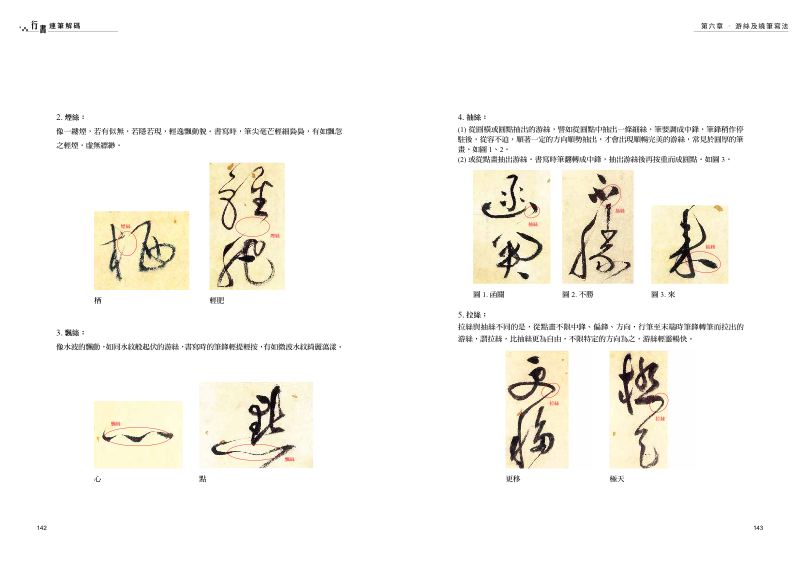 行書 連筆解碼
2. 煙絲：
像一縷煙，若有似無，若隱若現，輕逸飄動貌。書寫時，筆尖毫芒輕細裊裊，有如飄忽
之輕煙，虛無縹緲。
煙絲
煙絲
栖
輕肥
3. 飄絲：
像水波的飄動，如同水紋般起伏的游絲，書寫時的筆鋒輕提輕按，有如微波水紋綺麗蕩漾。
飄絲
飄絲
心
點
142
第六章 · 游絲及繞筆寫法
4. 抽絲：
(1) 從圓橫或圓點抽出的游絲，譬如從圓點中抽出一條細絲，筆要調成中鋒，筆鋒稍作停
駐後，從容不迫，順著一定的方向順勢抽出，才會出現順暢完美的游絲，常見於圓厚的筆
畫，如圖 1、2。
(2) 或從點畫抽出游絲，書寫時筆翻轉成中鋒，抽出游絲後再按重而成圓點，如圖 3。
抽絲
抽絲
抽絲
圖 1. 函關
圖 2. 不勝
圖 3. 來
5. 拉絲：
拉絲與抽絲不同的是，從點畫不限中鋒、偏鋒、方向，行筆至末端時筆鋒轉筆而拉出的
游絲，謂拉絲，比抽絲更為自由，不限特定的方向為之，游絲輕靈暢快。
拉絲
拉絲
更移
極天
143